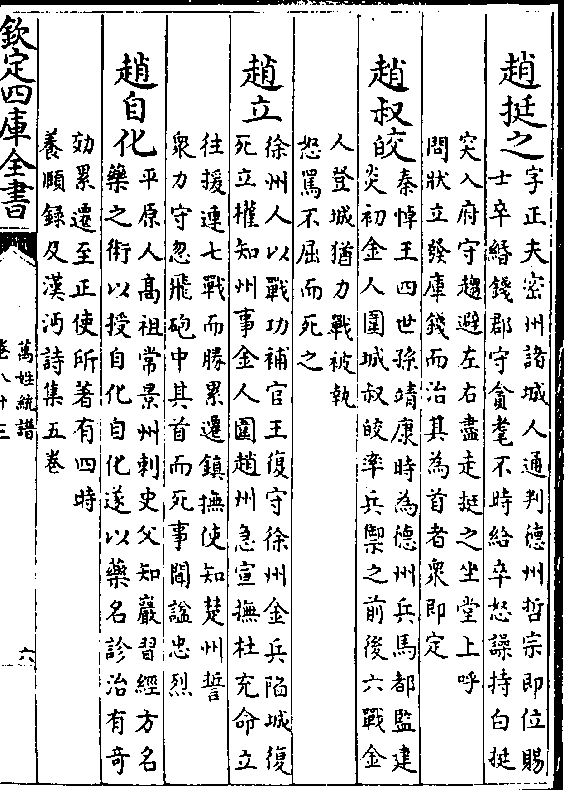 趙挺之字正夫密州諸城人通判德州哲宗即位賜
士卒緡錢郡守貪耄不時給卒怒譟持白挺
突入府守趨避左右盡走挺之坐堂上呼
問狀立發庫錢而治其為首者衆即定
趙叔皎秦悼王四世孫靖康時為德州兵馬都監建
炎初金人圍城叔皎率兵禦之前後六戰金
人登城猶力戰被執
怒罵不屈而死之
趙立徐州人以戰功補官王復守徐州金兵陷城復
死立權知州事金人圍趙州急宣撫杜充命立
往援連七戰而勝累遷鎮撫使知楚州誓
衆力守忽飛砲中其首而死事聞諡忠烈
趙自化平原人髙祖常景州刺史父知巖習經方名
藥之術以授自化自化遂以藥名診治有奇
効累遷至正使所著有四時
養頤錄及漢沔詩集五卷
欽定四庫全書
萬姓統譜
卷八十三
六